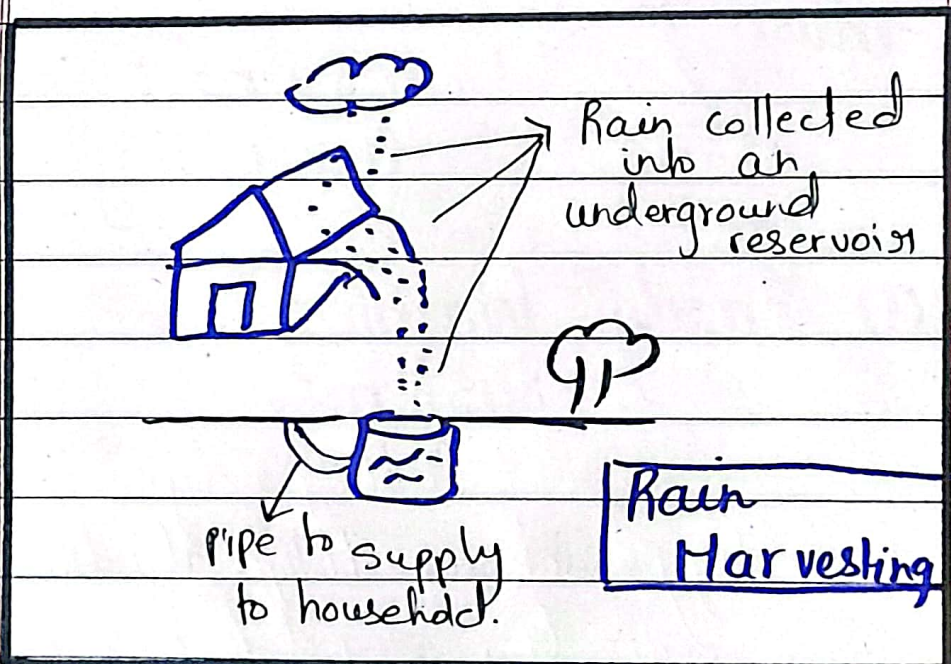 Rain collected
into an
underground
reservoir
pipe to supply
to household.
Rain
Harvesting